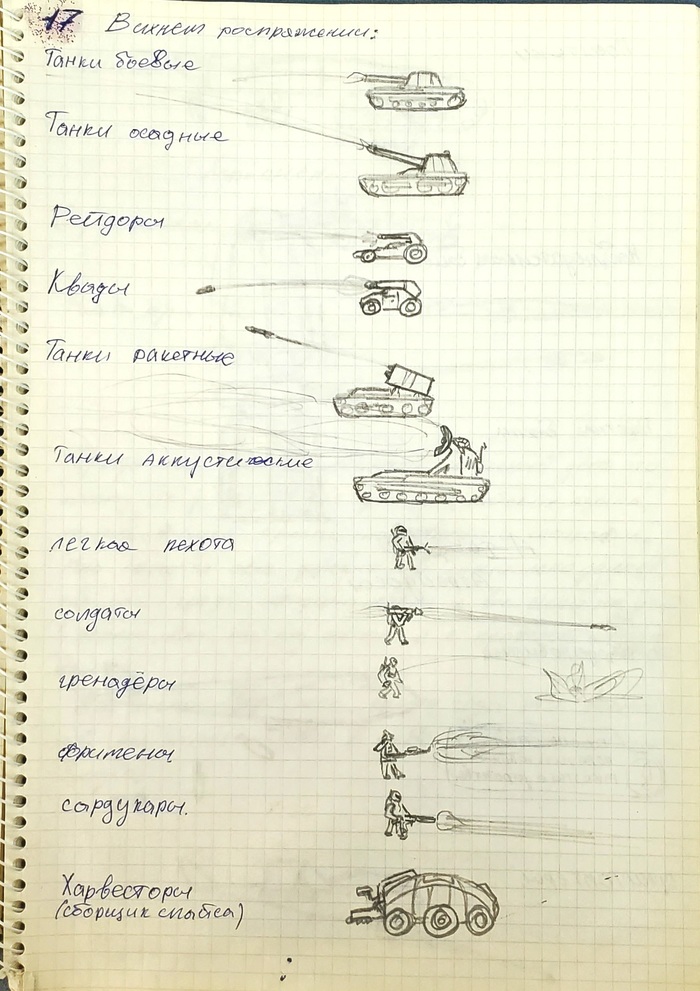 17 В вихнем роспряжении:
Танки боевые
Танки осадные
Рейдоры
Квады
Танки ракетные
Танки аккустические
легкая пехота
солдаты
гренадёры
фримены
сардукары.
Харвесторы
(сборщик спайса)